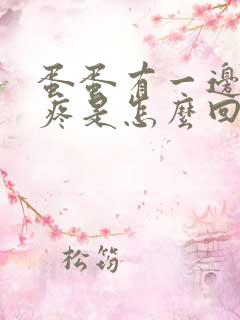 蛋蛋有一邊
疼是怎麼回
松筠